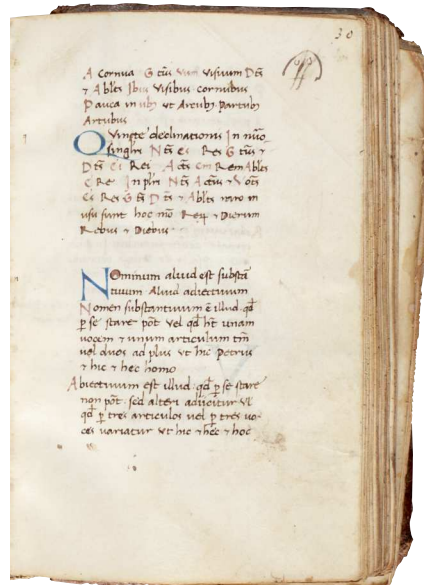 30
A Cornua G ctus visium Dts
⁊ Ablts Ibus visibus cornibus
Pauca in ubꝫ ut Arcubꝫ Partubꝫ
Artubus
Quinte declinationis In nuo
singlri Nts es Res Gctus ⁊
Dts Ei Rei Acts Em Rem Ablts
E Re In plri Nts Actus ⁊ Vots
Es Res Gts Dts ⁊ Ablts raro in
usu sunt hoc mo Reꝝ ⁊ Dierum
Rebus ⁊ Diebus
Nominum aliud est substā
tiuum Aliud adiectiuum
Nomen substantiuum ē illud qd
ꝑ se stare pōt vel qd ht unam
vocem ⁊ unum articulum tm̄
vel duos ad plus ut hic Petrus
⁊ hic ⁊ hec homo
Adiectiuum est illud qd ꝑ se stare
non pōt sed alteri adiicitur vl
qd ꝑ tres articulos uel ꝑ tres vo-
ces variatur ut hic ⁊ hec ⁊ hoc